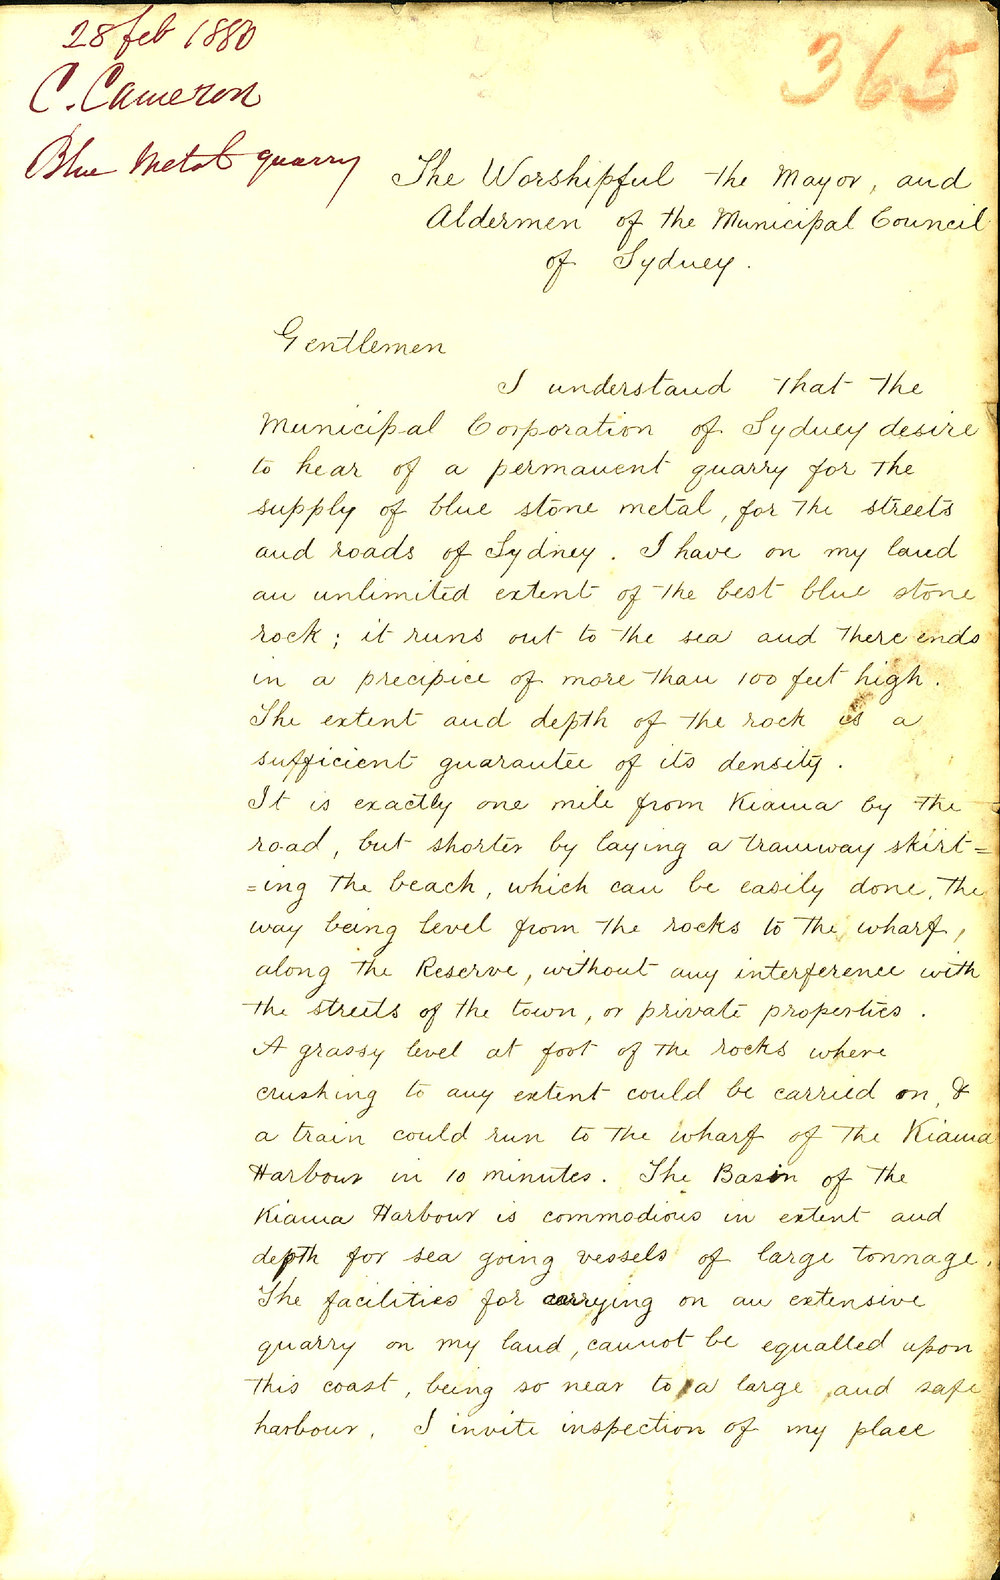 28 feb 1880
365
C. Cameron
Blue Metal quarry
The Worshipful the Mayor, and
Aldermen of the Municipal Council
of Sydney.
Gentlemen
I understand that the
Municipal Corporation of Sydney desire
to hear of a permanent quarry for the
supply of blue stone metal, for the streets
and roads of Sydney. I have on my land
an unlimited extent of the best blue stone
rock; it runs out to the sea and there ends
in a precipice of more than 100 feet high.
The extent and depth of the rock is a
sufficient guarantee of its density.
It is exactly one mile from Kiama by the
road, but shorter by laying a tramway skirt=
=ing the beach, which can be easily done, the
way being level from the rocks to the wharf,
along the Reserve, without any interference with
the streets of the town, or private properties.
A grassy level at foot of the rocks where
crushing to any extent could be carried on, &
a train could run to the wharf of the Kiama
Harbour in 10 minutes. The Basin of the
Kiama Harbour is commodious in extent and
depth for sea going vessels of large tonnage.
The facilities for carrying on an extensive
quarry on my land, cannot be equalled upon
this coast, being so near to a large and safe
harbour. I invite inspection of my place